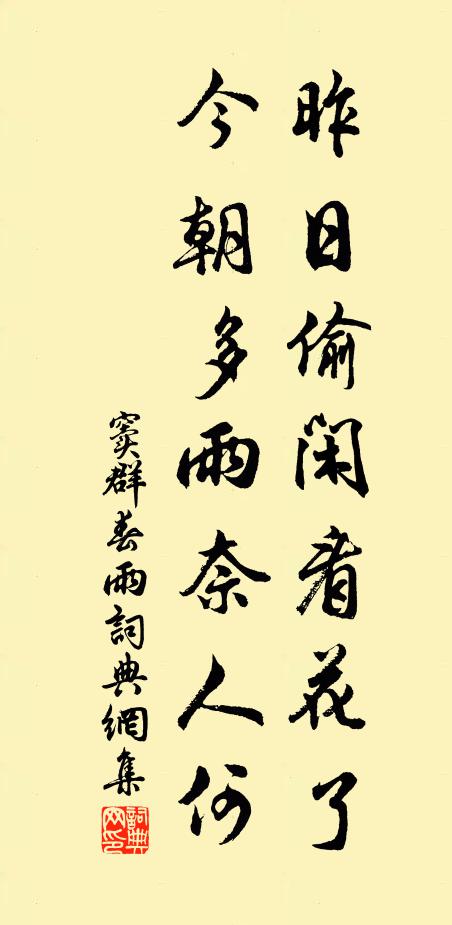 昨日偷閑看花了
今朝多雨奈人何
竇群春雨詞典網集
詞典网印